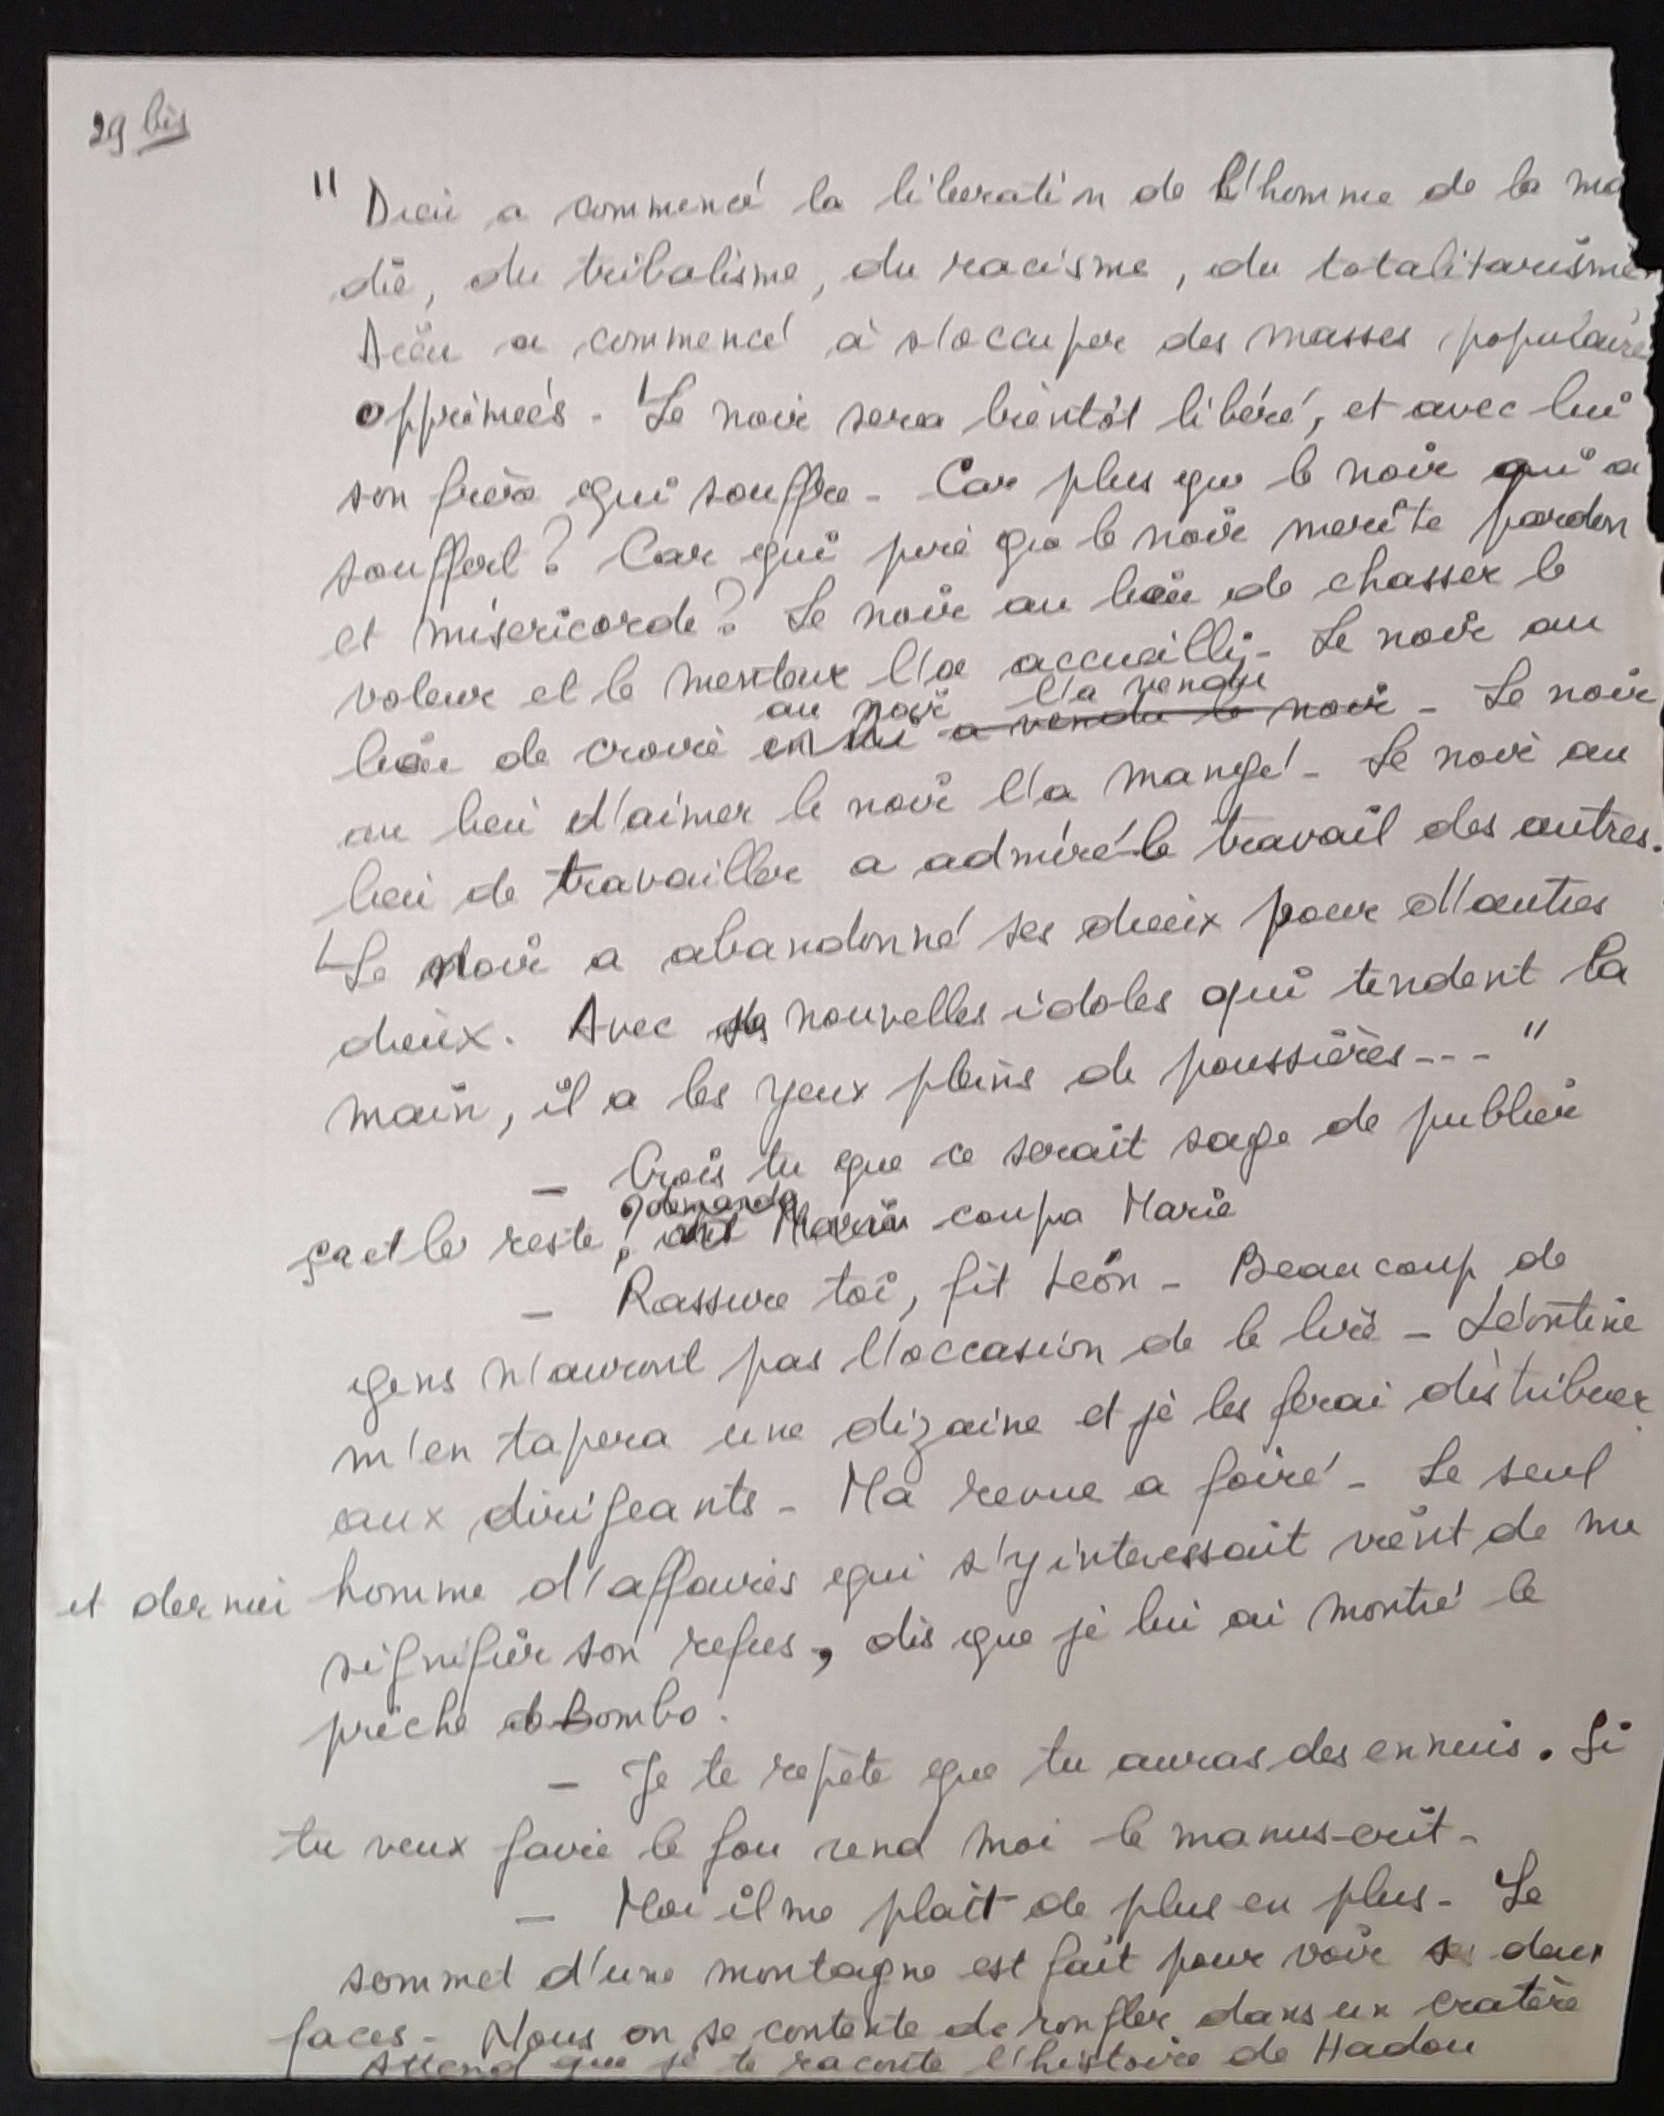 29 bis
" Dieu a commencé la libération de l'homme de la ma
die, du tribalisme, du racisme, du totalitarisme
Dieu a commencé à s'occuper des masses populaire
opprimées - Le noir sera bientôt libéré, et avec lui
son frère qui souffre - Car plus que le noir qui a
souffert ? Car qui pire que le noir merite pardon
et misericorde ? Le noir au lieu de chasser le
voleur et le menteur l'a accueilli - Le noir au
au noir l'a vendu
lieu de croire en lui a vendu le noir - Le noir
au lieu d'aimer le noir l'a mangé - Le noir au
lieu de travailler a admiré le travail des autres.
Le noir a abandonné ses dieux pour d'autres
dieux. Avec nouvelles idoles qui tendent la
main, il a les yeux pleins de poussières --- "
- Crois tu que ce serait sage de publier
demanda
ça et le reste ? dit Marie coupa Marie
- Rassure toi, fit Léon - Beaucoup de
gens n'auront pas l'occasion de le lire - Léontine
m'en tapera une dizaine et je les ferai distribuer
aux dirigeants - Ma revue a foiré - Le seul
et dernier homme d'affaires qui s'y interessait vient de me
signifier son refus, dis que je lui ai montré le
prêche de Bombo.
- Je te repète que tu auras des ennuis. Si
tu veux faire le fou rend moi le manus-crit -
- Moi il me plait de plus en plus - Le
sommet d'une montagne est fait pour voir ses deux
faces - Nous on se contente de ronfler dans un cratère
Attend que je te raconte l'histoire de Hadou